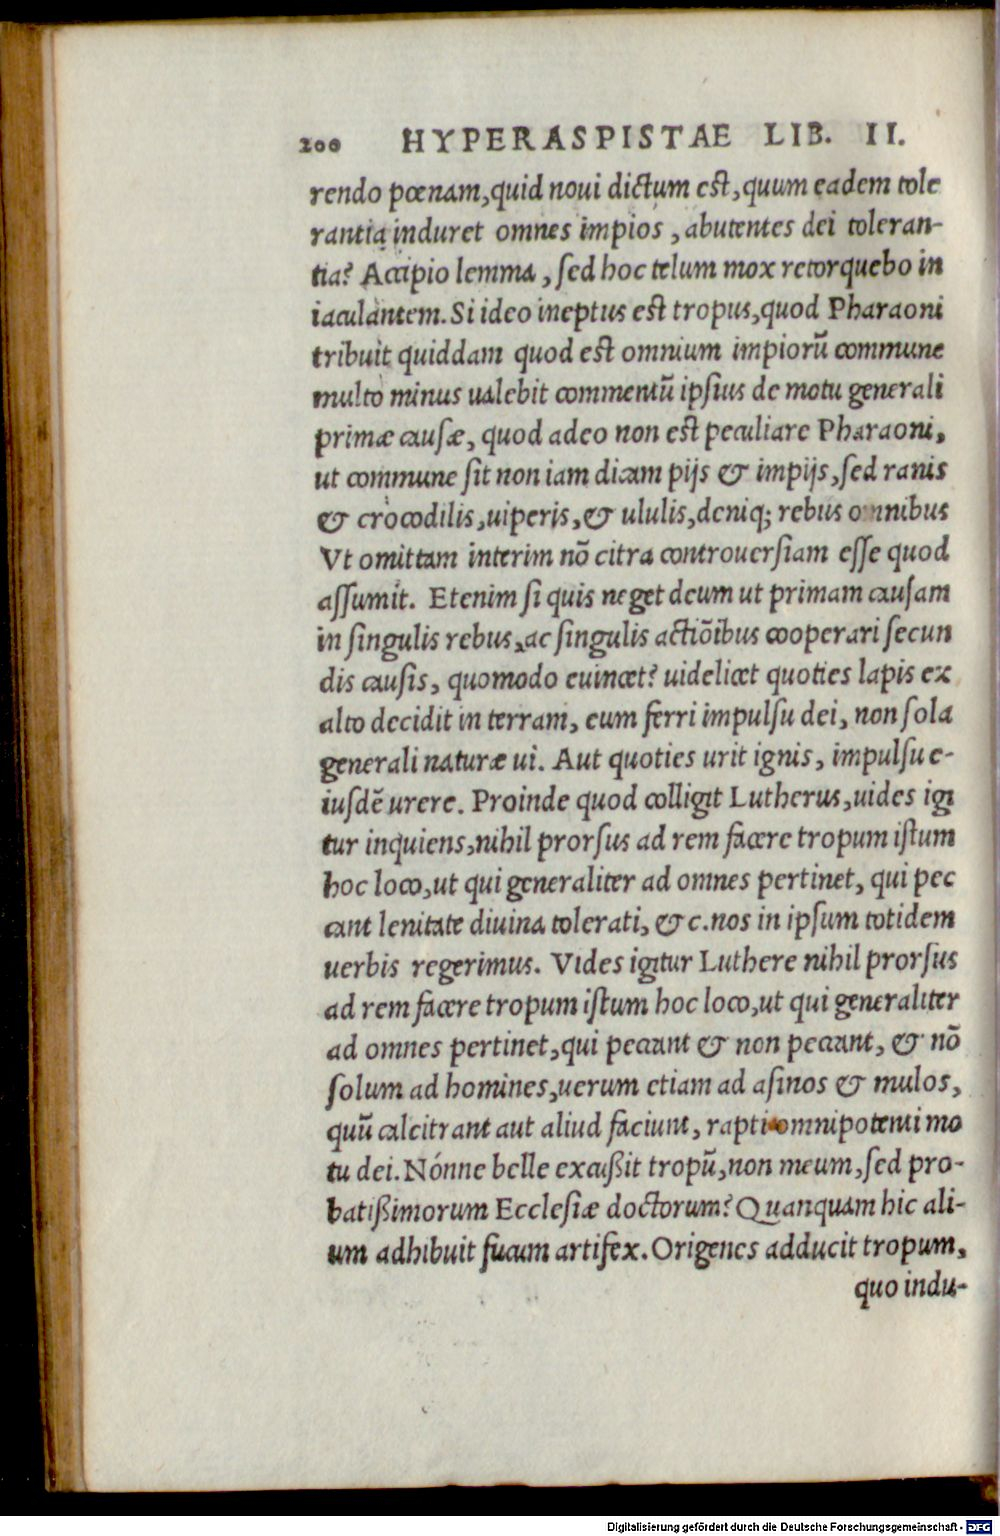 200 HYPERASPISTAE LIB. II.
rendo pœnam, quid noui dictum est, quum eadem tole
rantia induret omnes impios, abutentes dei toleran-
tia? Accipio lemma, sed hoc telum mox retorquebo in
iaculantem. Si ideo ineptus est tropus, quod Pharaoni
tribuit quiddam quod est omnium impiorũ commune
multo minus ualebit commentũ ipsius de motu generali
primæ causæ, quod adeo non est peculiare Pharaoni,
ut commune sit non iam dicam pijs & impijs, sed ranis
& crocodilis, uiperis, & ululis, deniq; rebus omnibus
Vt omittam interim nõ citra controuersiam esse quod
assumit. Etenim si quis neget deum ut primam causam
in singulis rebus, ac singulis actiõibus cooperari secun
dis causis, quomodo euincet? uidelicet quoties lapis ex
alto decidit in terram, eum ferri impulsu dei, non sola
generali naturæ ui. Aut quoties urit ignis, impulsu e-
iusdẽ urere. Proinde quod colligit Lutherus, uides igi
tur inquiens, nihil prorsus ad rem facere tropum istum
hoc loco, ut qui generaliter ad omnes pertinet, qui pec
cant lenitate diuina tolerati, & c. nos in ipsum totidem
uerbis regerimus. Vides igitur Luthere nihil prorsus
ad rem facere tropum istum hoc loco, ut qui generaliter
ad omnes pertinet, qui peccant & non peccant, & nõ
solum ad homines, uerum etiam ad asinos & mulos,
quũ calcitrant aut aliud faciunt, rapti omnipotenti mo
tu dei. Nónne belle excußit tropũ, non meum, sed pro-
batißimorum Ecclesiæ doctorum? Quanquam hic ali-
um adhibuit fucum artifex. Origenes adducit tropum,
quo indu-
Digitalisierung gefördert durch die Deutsche Forschungsgemeinschaft - DFG